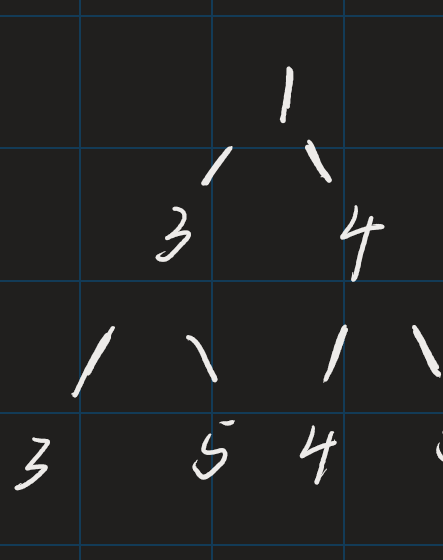 1
3 4
3 5 4